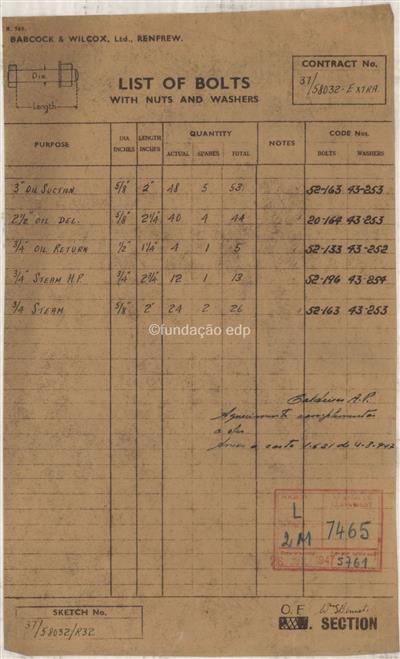 BABCOCK & WILCOX, Ltd., RENFREW.
Dia.
Length
LIST OF BOLTS
WITH NUTS AND WASHERS
CONTRACT No.
37/58032-EXTRA
PURPOSE DIA INCHES LENGTH INCHES QUANTITY ACTUAL SPARES TOTAL NOTES CODE Nos. BOLTS WASHERS
3" OIL SUCTION 5/8" 2" 48 5 53 52-163 43-253
2½" OIL DEL. 5/8" 2¼" 40 4 44 20-164 43-253
¾" OIL RETURN ½" 1¼" 4 1 5 52-133 43-252
¾" STEAM H.P. ¾" 2¾" 12 1 13 52-196 43-254
¾ STEAM 5/8" 2" 24 2 26 52-163 43-253
©fundação edp
Caldeiras A.P.
a carta 1.621 de 4-8-947
L
2M
7465
5761
SKETCH No.
37/58032/R32
O.F.
SECTION